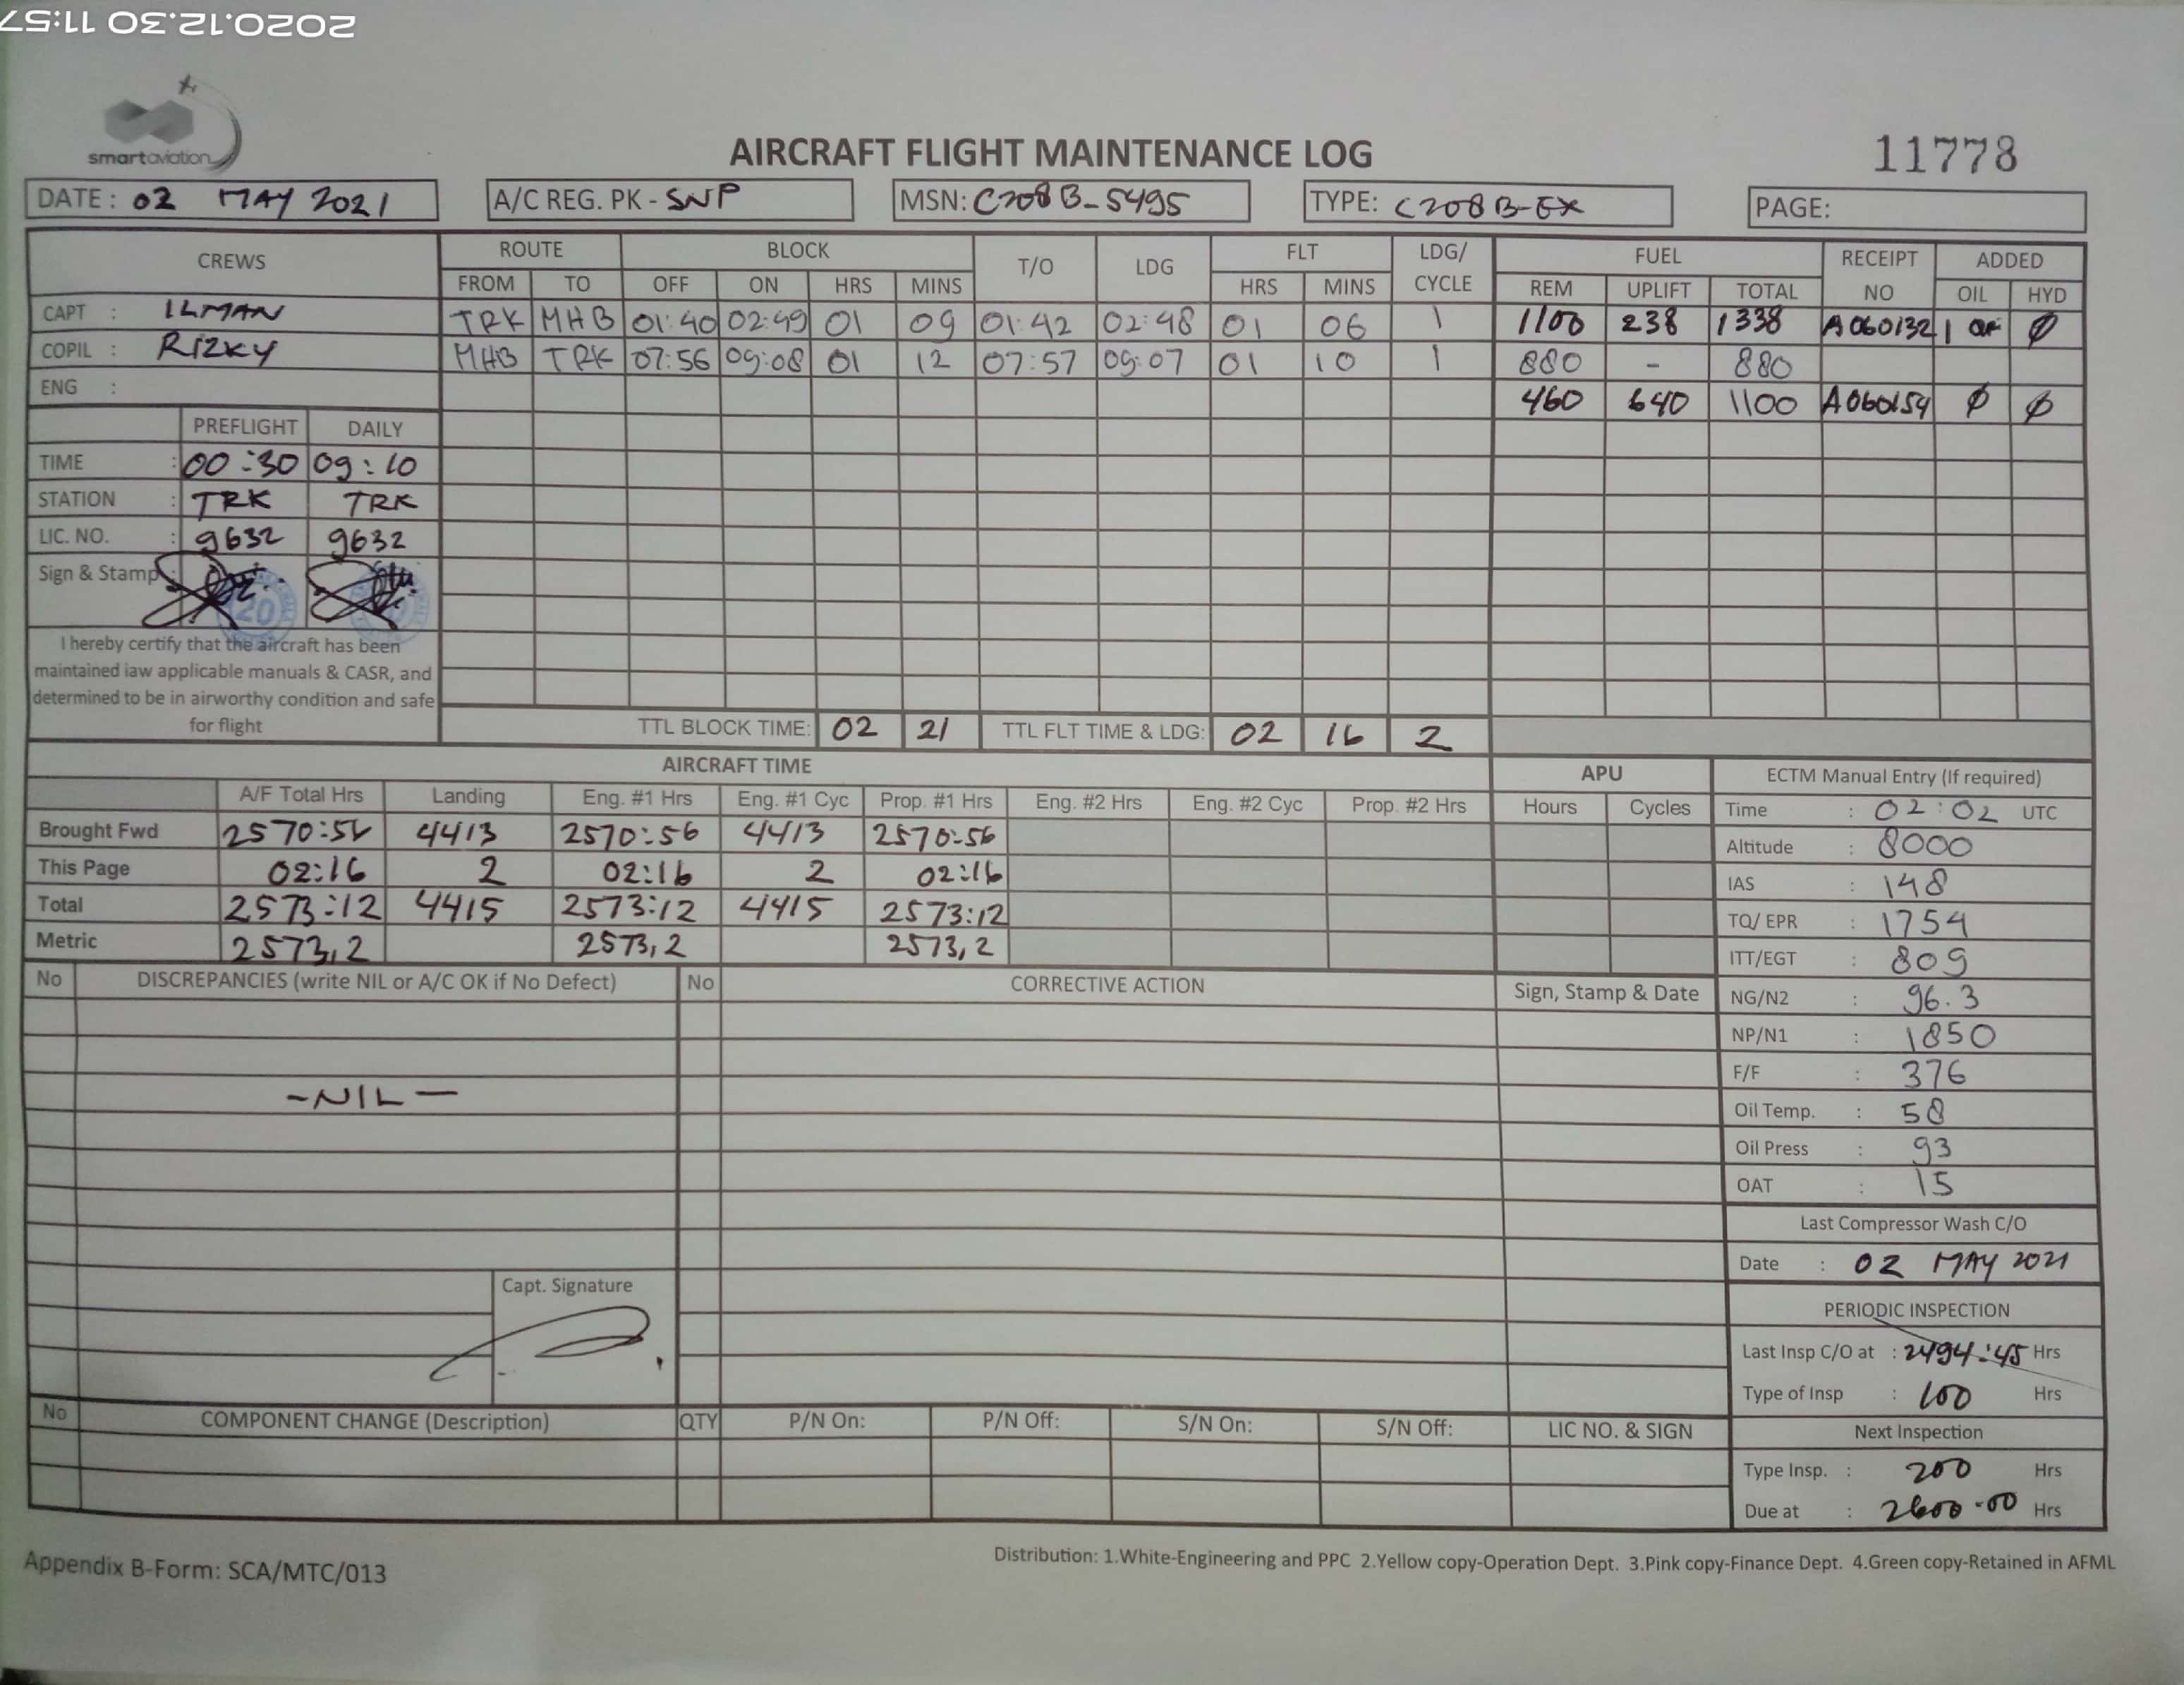 2020.12.30 11:57
smartaviation
AIRCRAFT FLIGHT MAINTENANCE LOG
11778
DATE: 02 MAY 2021
A/C REG. PK - SNP
MSN: C208B-5495
TYPE: C208B-EX
PAGE:
CREWS ROUTE BLOCK T/O LDG FLT LDG/ CYCLE FUEL RECEIPT NO ADDED
FROM TO OFF ON HRS MINS HRS MINS REM UPLIFT TOTAL OIL HYD
CAPT : ILMAN TRK MHB 01:40 02:49 01 09 01:42 02:48 01 06 1 1100 238 1338 A060132 Ø
COPIL : RIZKY MHB TRK 07:56 09:08 01 12 07:57 09:07 01 10 1 880 - 880
ENG : 460 640 1100 A060154 Ø Ø
PREFLIGHT DAILY
TIME : 00:30 09:10
STATION : TRK TRK
LIC. NO. : 9632 9632
Sign & Stamp :
20
I hereby certify that the aircraft has been
maintained iaw applicable manuals & CASR, and
determined to be in airworthy condition and safe
for flight
TTL BLOCK TIME: 02 21 TTL FLT TIME & LDG: 02 16 2
AIRCRAFT TIME APU ECTM Manual Entry (If required)
A/F Total Hrs Landing Eng. #1 Hrs Eng. #1 Cyc Prop. #1 Hrs Eng. #2 Hrs Eng. #2 Cyc Prop. #2 Hrs Hours Cycles
Brought Fwd 2570:56 4413 2570:56 4413 2570:56
This Page 02:16 2 02:16 2 02:16
Total 2573:12 4415 2573:12 4415 2573:12
Metric 2573,2 2573,2 2573,2
Time : 02:02 UTC
Altitude : 8000
IAS : 148
TQ/ EPR : 1754
ITT/EGT : 809
NG/N2 : 96.3
NP/N1 : 1850
F/F : 376
Oil Temp. : 58
Oil Press : 93
OAT : 15
Last Compressor Wash C/O
Date : 02 MAY 2021
PERIODIC INSPECTION
Last Insp C/O at : 2494:45 Hrs
Type of Insp : 100 Hrs
Next Inspection
Type Insp. : 200 Hrs
Due at : 2600:00 Hrs
No DISCREPANCIES (write NIL or A/C OK if No Defect) No CORRECTIVE ACTION Sign, Stamp & Date
- NIL -
Capt. Signature
No COMPONENT CHANGE (Description) QTY P/N On: P/N Off: S/N On: S/N Off: LIC NO. & SIGN
Appendix B-Form: SCA/MTC/013
Distribution: 1.White-Engineering and PPC 2.Yellow copy-Operation Dept. 3.Pink copy-Finance Dept. 4.Green copy-Retained in AFML